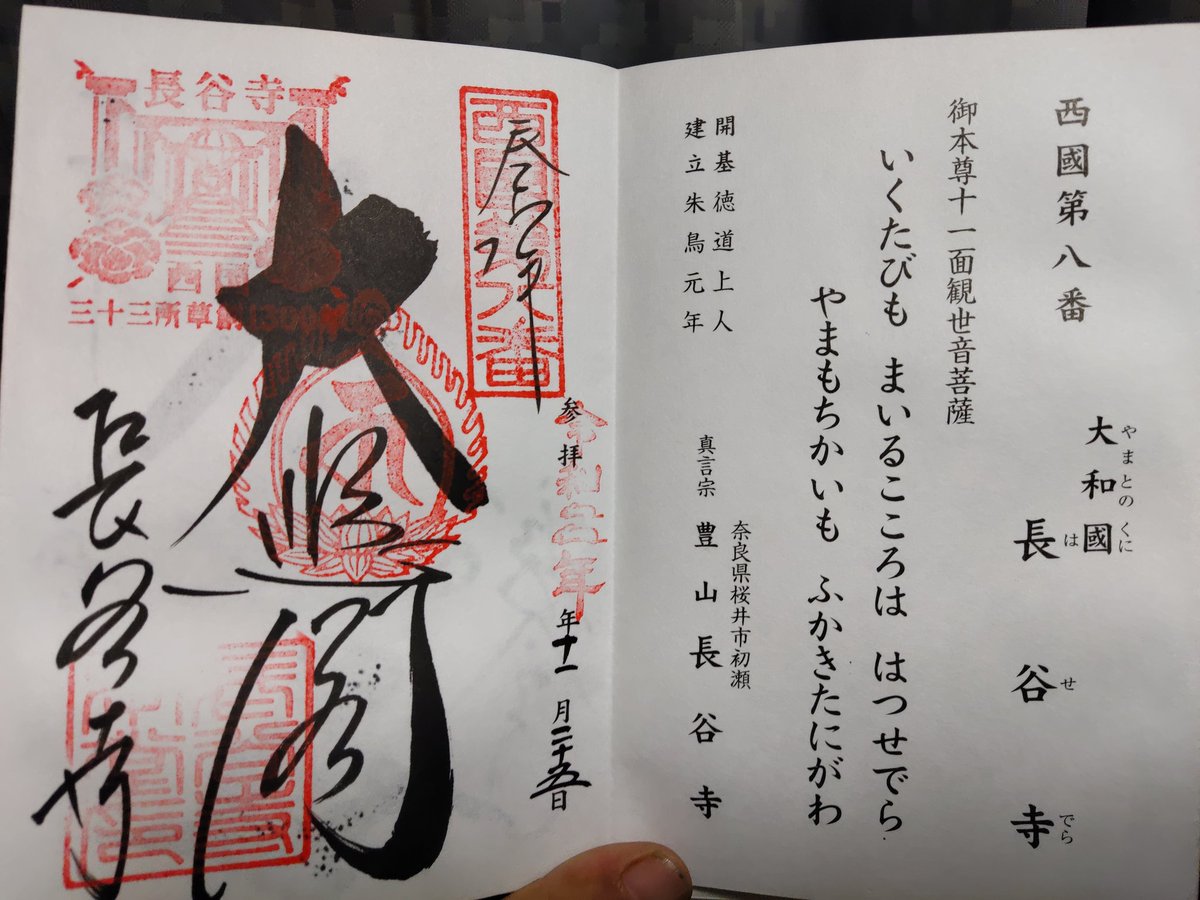 西國第八番
やまとのくに
大和國
はせでら
長谷寺
御本尊十一面観世音菩薩
いくたびも まいるこころは はつせでら
やまもちかいも ふかきたにがわ
開基徳道上人
建立朱鳥元年
奈良県桜井市初瀬
真言宗 豊山長谷寺
参拝 年十一月二十五日
奉拝
西國第八番
大悲閣
長谷寺
長谷寺
西国
三十三所草創1300年